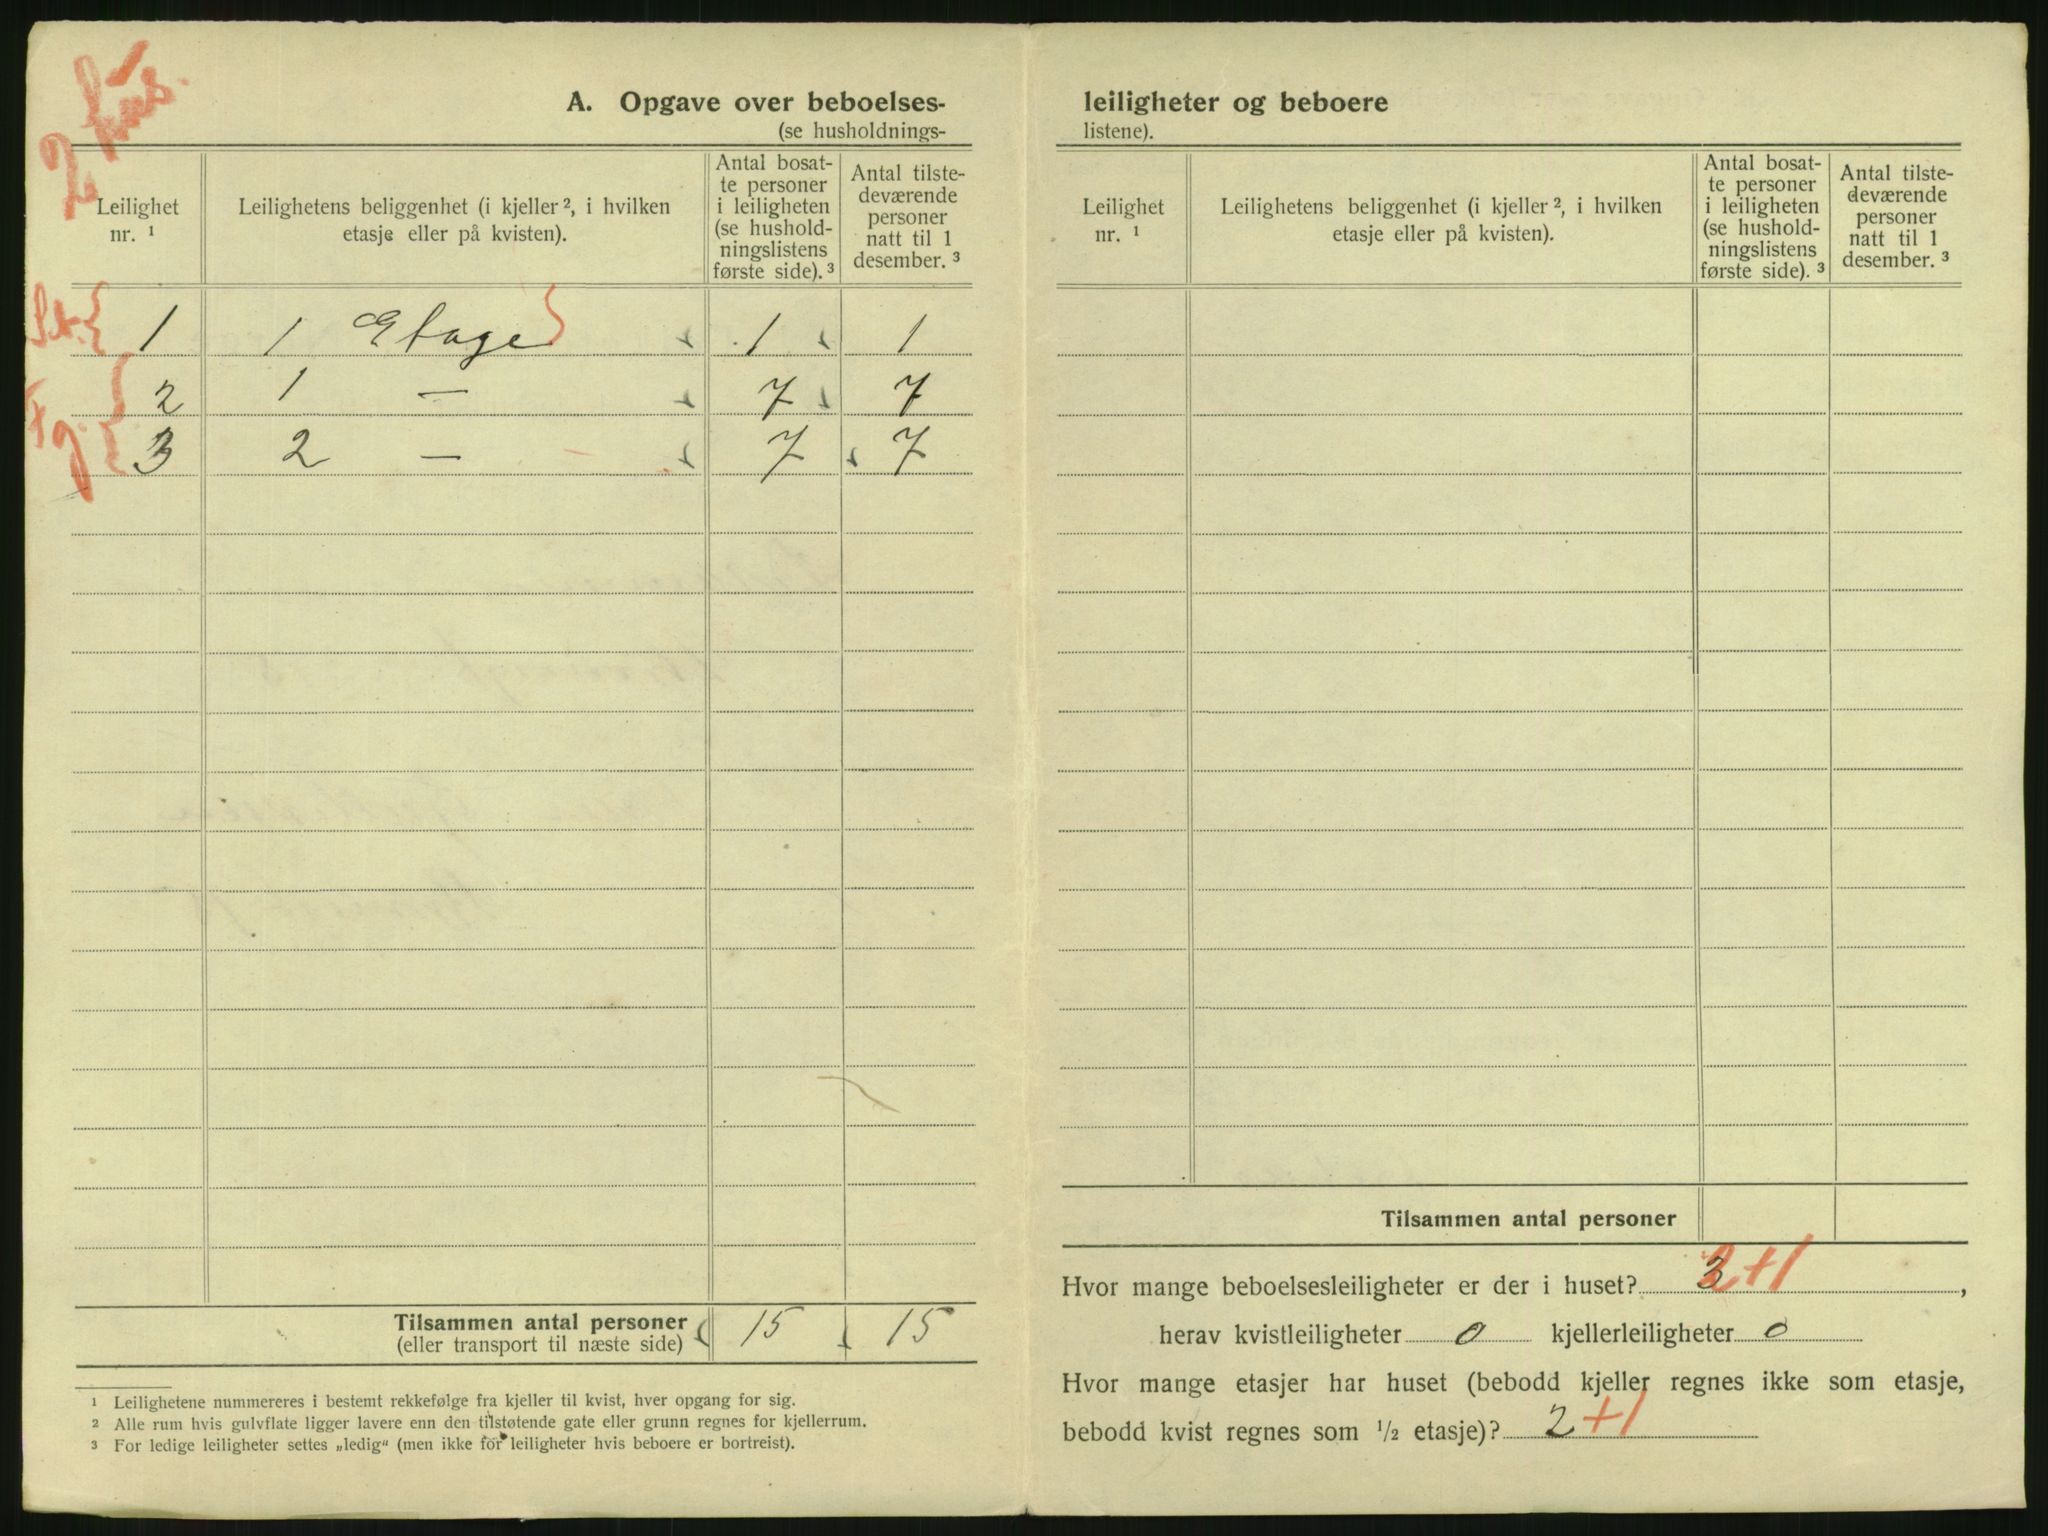 2 hus.
A. Opgave over beboelses-
(se husholdnings-
Leilighet
nr. 1
Leilighetens beliggenhet (i kjeller 2, i hvilken
etasje eller på kvisten).
Antal bosat-
te personer
i leiligheten
(se hushold-
ningslistens
første side). 3
Antal tilste-
deværende
personer
natt til 1
desember. 3
1 1 Etage 1 1
2 1 — 7 7
Fg.
3 2 — 7 7
Tilsammen antal personer 15 15
(eller transport til næste side)
1 Leilighetene nummereres i bestemt rekkefølge fra kjeller til kvist, hver opgang for sig.
2 Alle rum hvis gulvflate ligger lavere enn den tilstøtende gate eller grunn regnes for kjellerrum.
3 For ledige leiligheter settes „ledig“ (men ikke for leiligheter hvis beboere er bortreist).
leiligheter og beboere
listene).
Leilighet
nr. 1
Leilighetens beliggenhet (i kjeller 2, i hvilken
etasje eller på kvisten).
Antal bosat-
te personer
i leiligheten
(se hushold-
ningslistens
første side). 3
Antal tilste-
deværende
personer
natt til 1
desember. 3
Tilsammen antal personer
Hvor mange beboelsesleiligheter er der i huset? 3 2+1,
herav kvistleiligheter 0 kjellerleiligheter 0
Hvor mange etasjer har huset (bebodd kjeller regnes ikke som etasje,
bebodd kvist regnes som 1/2 etasje)? 2+1